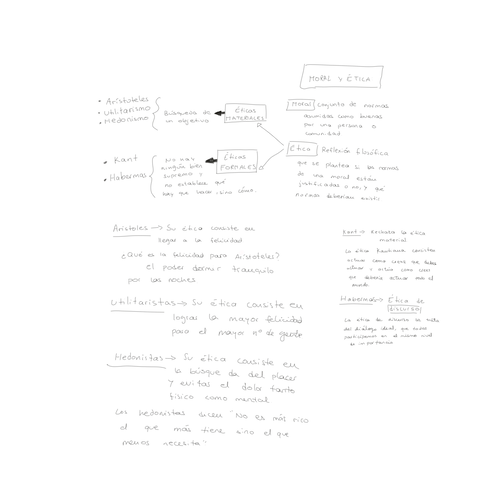 MORAL Y ÉTICA
• Aristoteles
• Utilitarismo
• Hedonismo
Búsqueda de
un objetivo
ÉTICAS
MATERIALES
Moral conjunto de normas
asumidas como buenas
por una persona o
comunidad
• Kant
• Habermas
No hay
ningún bien
supremo y
no establece qué
hay que hacer, sino cómo.
ÉTICAS
FORMALES
ÉTICA Reflexión filosófica
que se plantea si las normas
de una moral están
justificadas o no, y qué
normas deberían existir
Aristoles → Su ética consiste en
llegar a la felicidad
¿Qué es la felicidad para Aristoteles?
el poder dormir tranquilo
por las noches
Utilitaristas → Su ética consiste en
lograr la mayor felicidad
para el mayor nº de gente
Hedonistas → Su ética consiste en
la búsqueda del placer
y evitar el dolor tanto
físico como mental
Los hedonistas dicen "No es más rico
el que más tiene sino el que
menos necesita"
Kant → Rechaza la ética
material
La ética Kantiana consiste
actuar como crees que debes
actuar y actúa como crees
que debería actuar todo el
mundo
Habermas → Ética de
discurso
La ética de discurso se trata
del diálogo ideal, que todos
participamos en el mismo nivel
de importancia